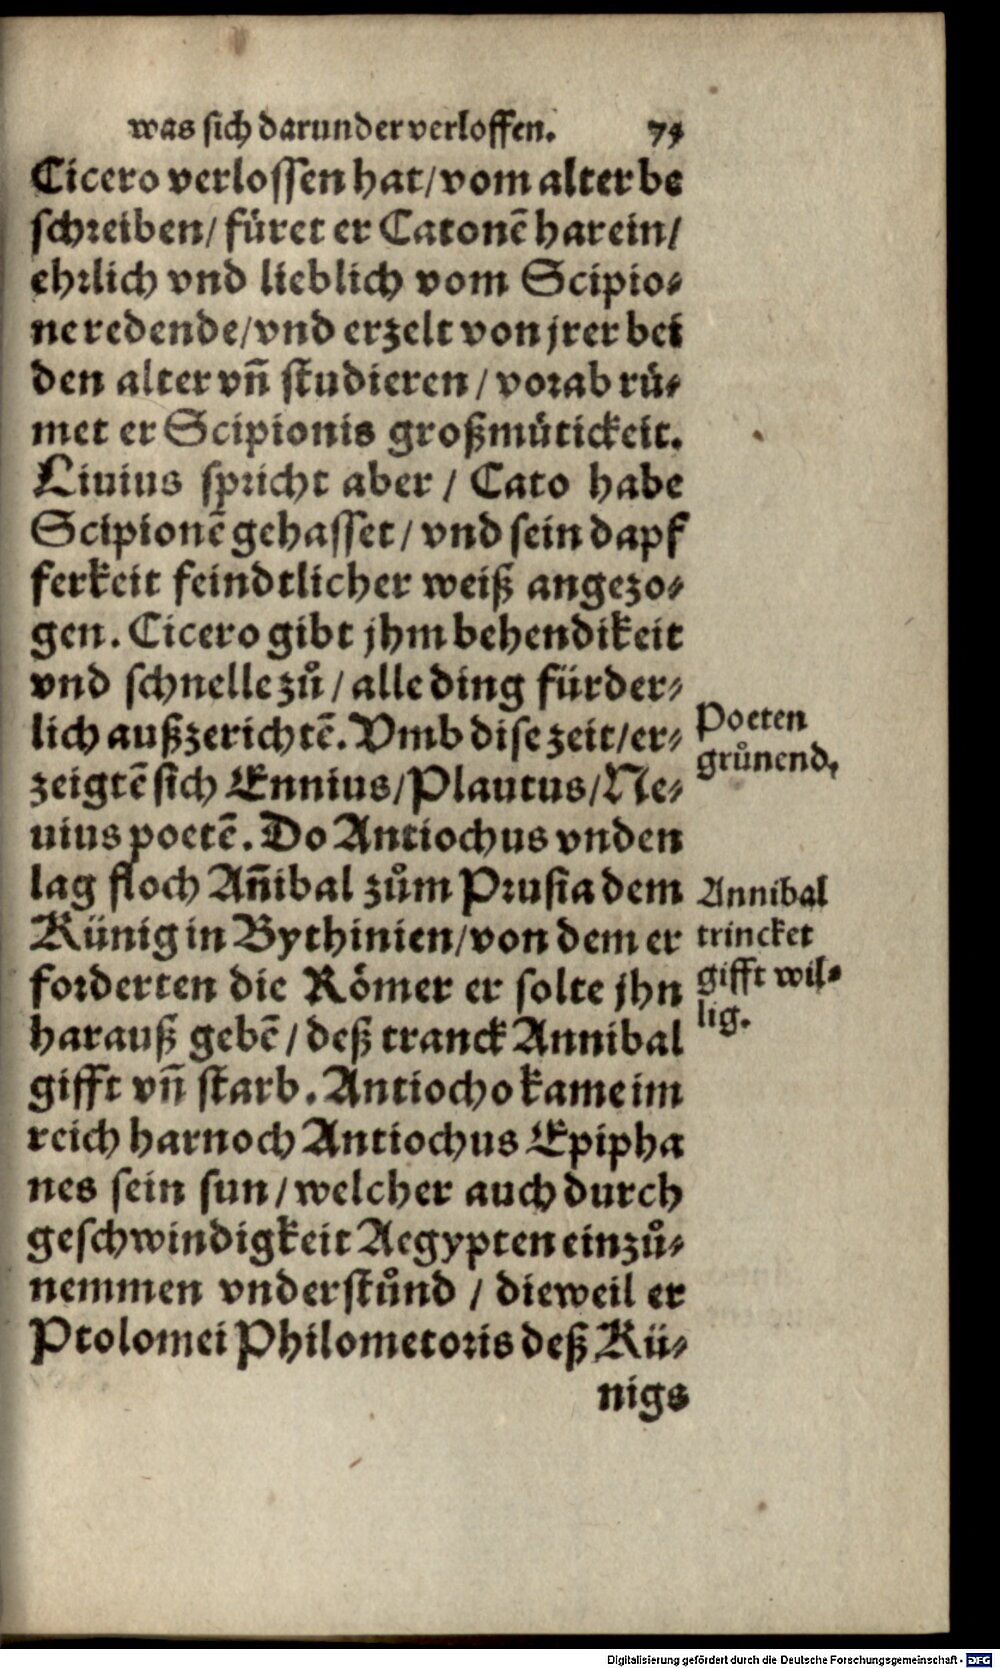 was sich darunder verloffen. 75
Cicero verlossen hat/vom alter be
schreiben/ füret er Catonē harein/
ehrlich vnd lieblich vom Scipio⸗
ne redende/vnd erzelt von jrer bei
den alter vn̄ studieren / vorab rü⸗
met er Scipionis großmütickeit.
Liuius spricht aber / Cato habe
Scipionē gehasset / vnd sein dapf
ferkeit feindtlicher weiß angezo⸗
gen. Cicero gibt jhm behendikeit
vnd schnelle zů / alle ding fürder⸗
lich außzerichtē. Vmb dise zeit/er⸗
zeigtē sich Ennius/Plautus/Ne⸗
uius poetē. Do Antiochus vnden
lag floch An̄ibal zům Prusia dem
Künig in Bythinien/von dem er
forderten die Römer er solte jhn
harauß gebē / deß tranck Annibal
gifft vn̄ starb. Antiocho kame im
reich harnoch Antiochus Epipha
nes sein sun / welcher auch durch
geschwindigkeit Aegypten einzů⸗
nemmen vnderstůnd / dieweil er
Ptolomei Philometoris deß Kü⸗
nigs
Poeten
grůnend.
Annibal
trincket
gifft wil⸗
lig.
Digitalisierung gefördert durch die Deutsche Forschungsgemeinschaft - DFG